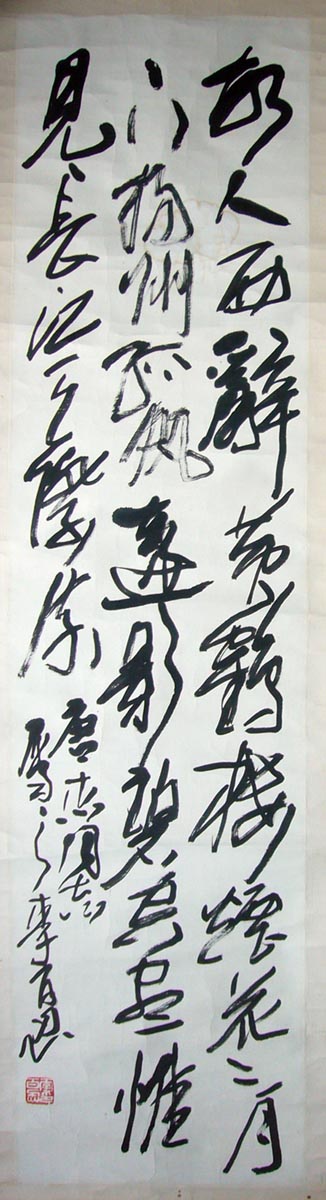 故人西辭黄鶴樓煙花三月
下揚州孤帆遠影碧空盡惟
見長江天際流
唐 同志
李百忍